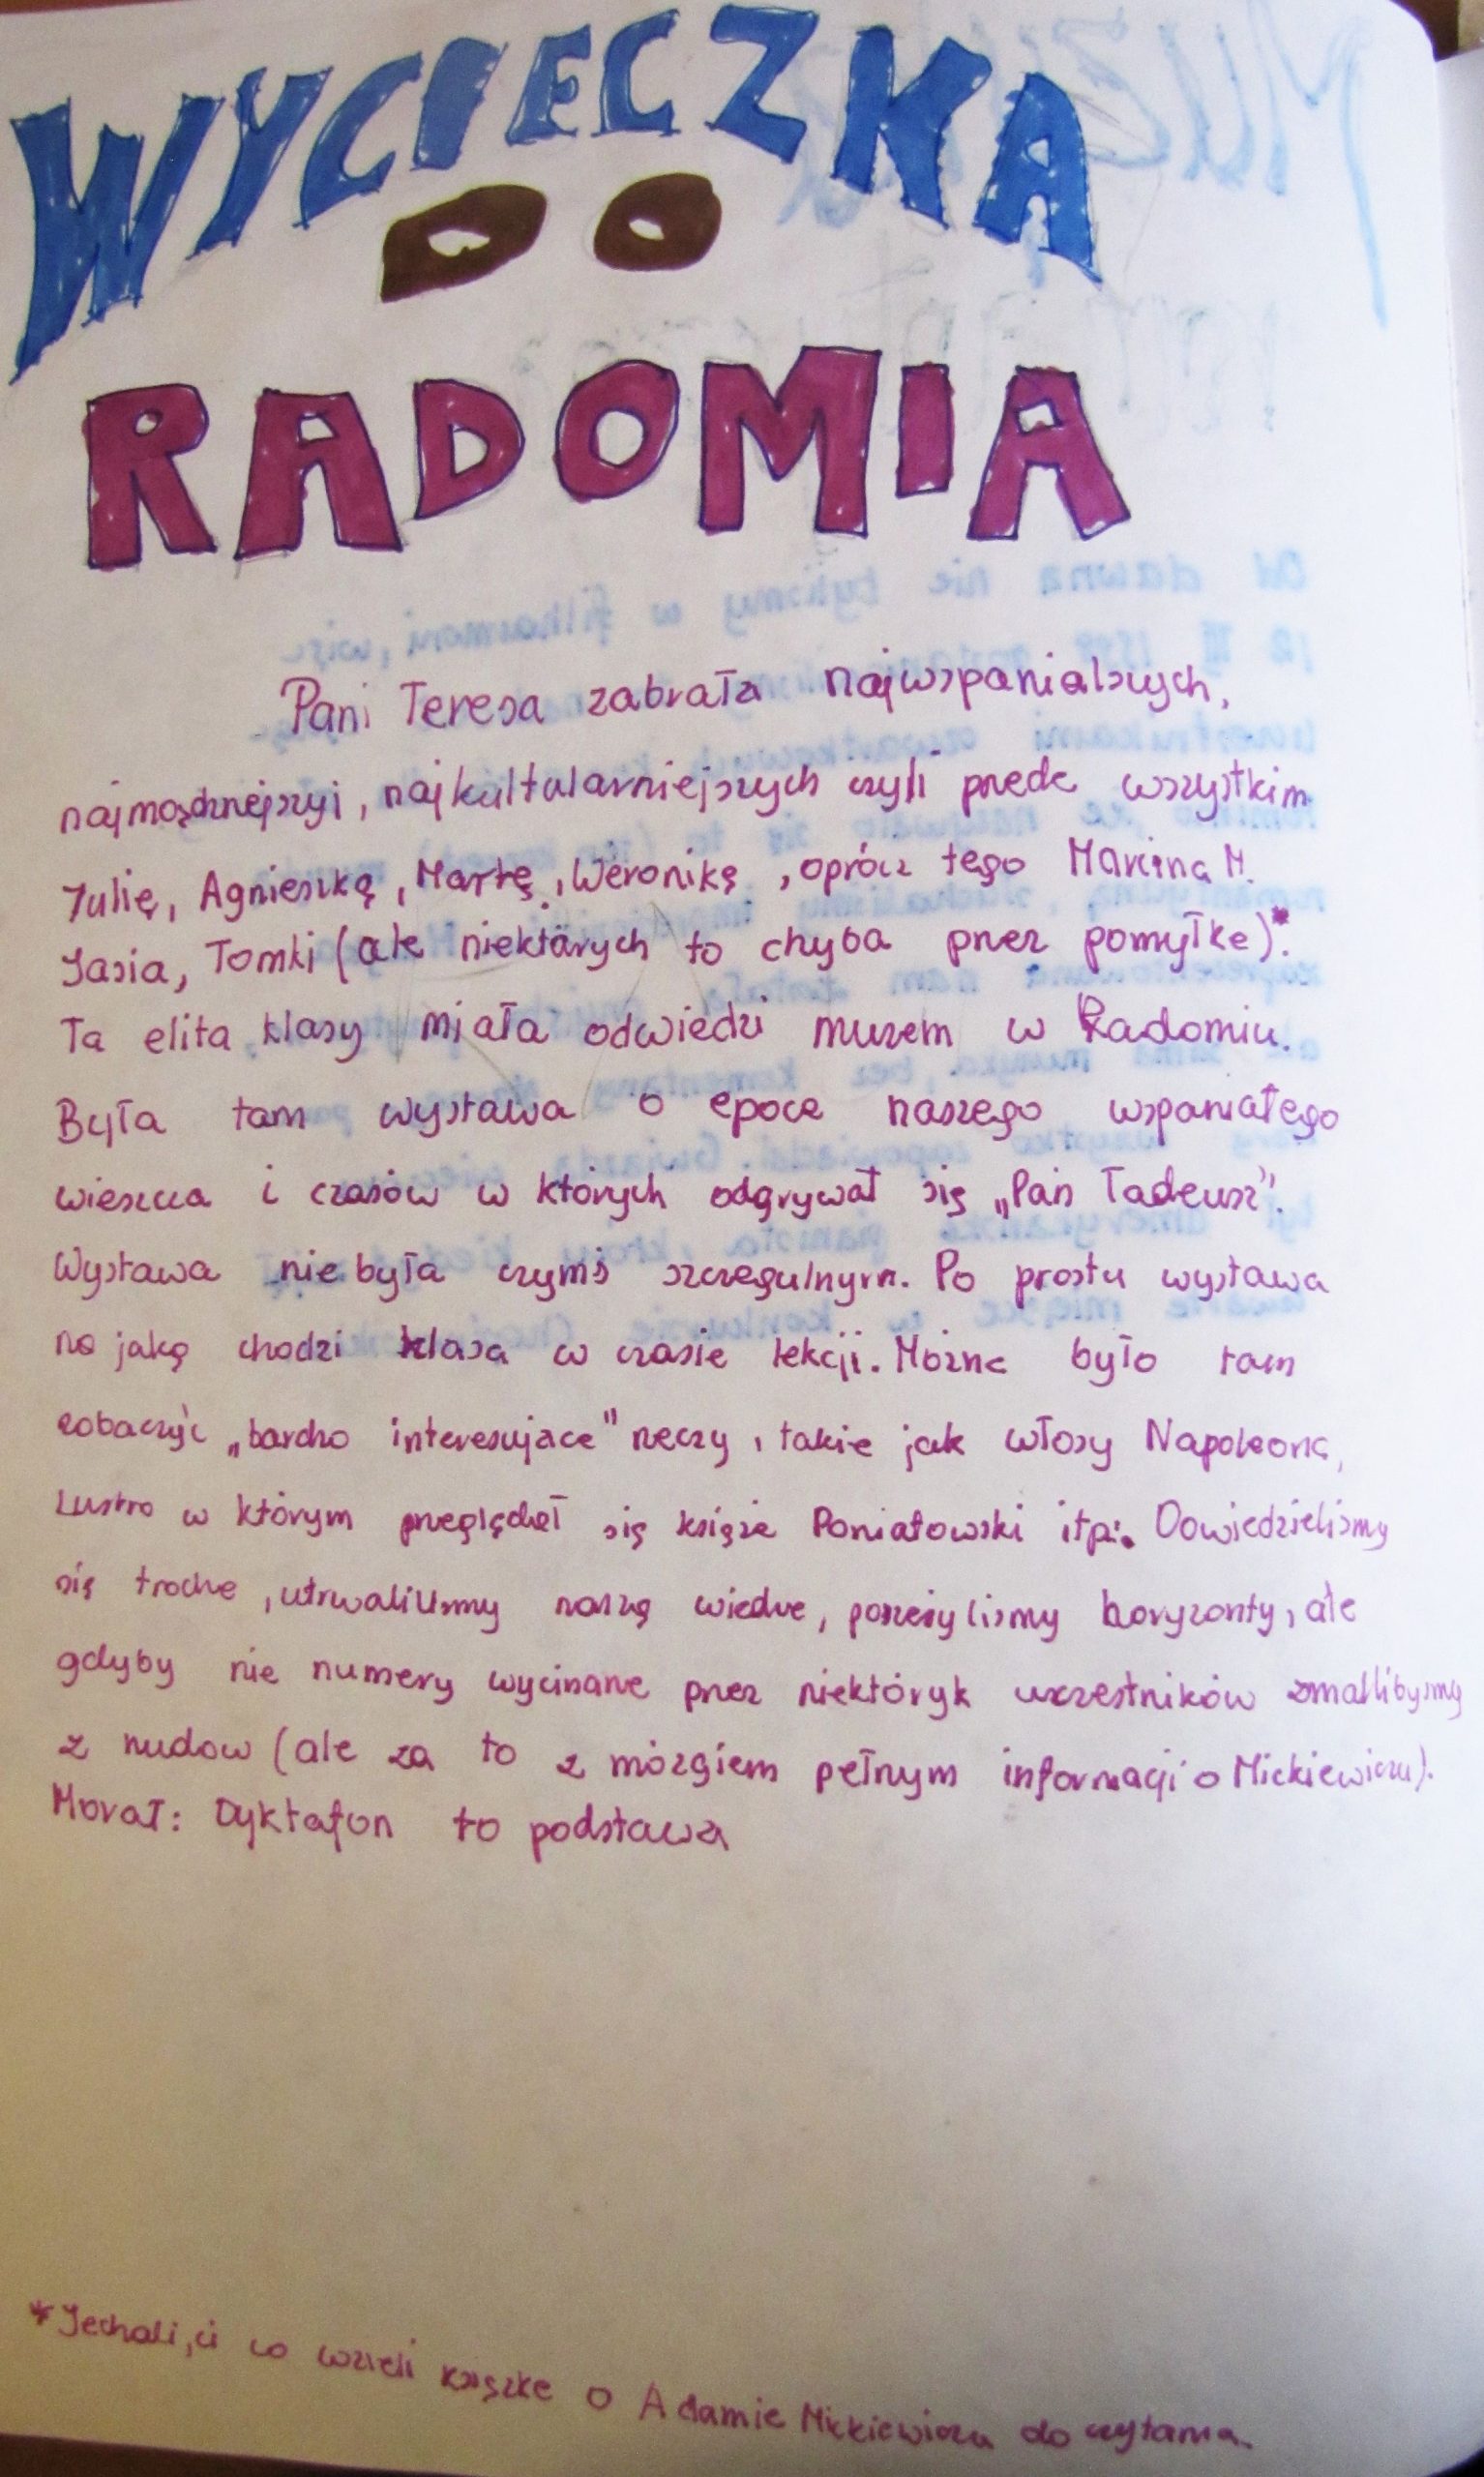 WYCIECZKA
DO
RADOMIA
Pani Teresa zabrała najwspanialszych,
najmądrzejszyi, najkultularniejszych czyli przede wszystkim
Julię, Agnieszką, Martę, Weronikę, oprócz tego Marcina M.
Jasia, Tomki (ale niektórych to chyba przez pomyłke)*.
Ta elita klasy miała odwiedzi muzem w Radomiu.
Była tam wystawa o epoce naszego wspaniałego
wieszcza i czasów w których odgrywał się „Pan Tadeusz".
Wystawa nie była czymś szczegulnym. Po prostu wystawa
na jaką chodzi klasa w czasie lekcji. Możne było tam
zobaczyć „bardzo interesujace" rzeczy, takie jak włosy Napoleona,
Lustro w którym przeglądał się książe Poniatowski itp. Dowiedzieliśmy
się troche, utrwaliliśmy naszą wiedze, poszeżyliśmy horyzonty, ale
gdyby nie numery wycinane przez niektóryk uczestników zmarlibyśmy
z nudow (ale za to z mózgiem pełnym informacji o Mickiewiczu).
Morał: Dyktafon to podstawa
*Jechali, ci co wzieli książke o Adamie Mickiewiczu do czytania.